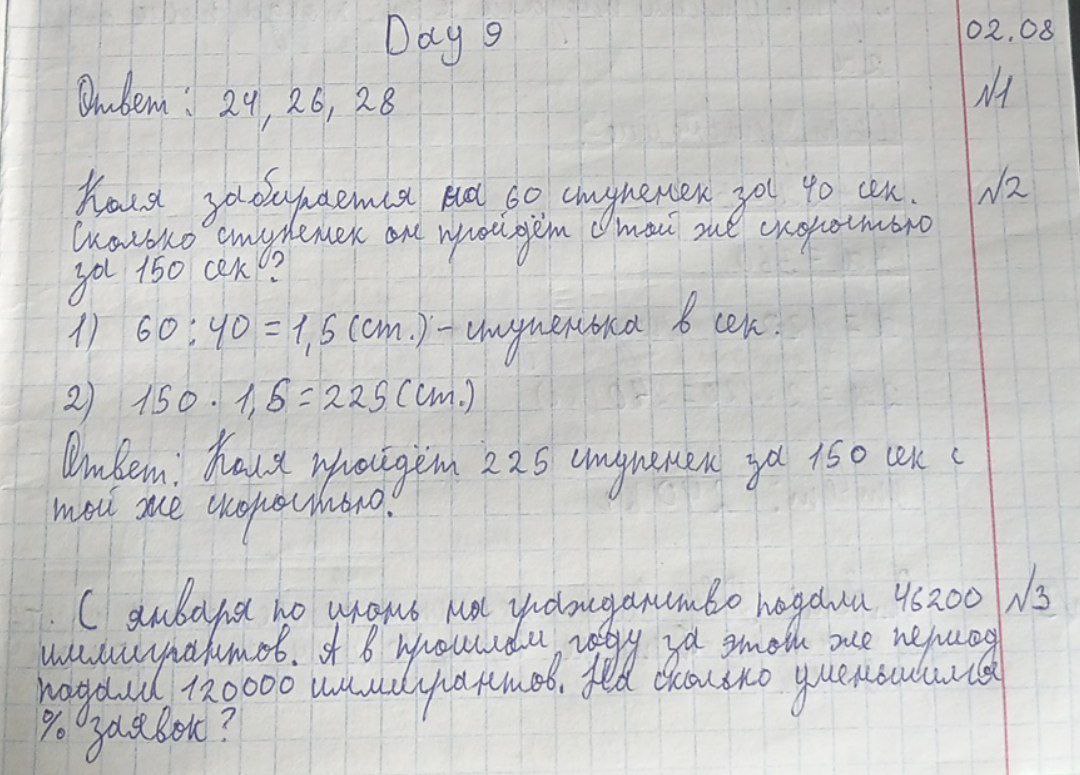 Day 9
02.08
Ответ: 24, 26, 28
№1
Коля забирается на 60 ступенек за 40 сек.
№2
Сколько ступенек он пройдёт с той же скоростью
за 150 сек?
1) 60 : 40 = 1,5 (ст.) - ступенька в сек.
2) 150 · 1,5 = 225 (ст.)
Ответ: Коля пройдёт 225 ступенек за 150 сек с
той же скоростью.
С января по июнь на гражданство подали 46200
№3
иммигрантов. А в прошлом году за этот же период
подали 120000 иммигрантов. На сколько уменьшился
% заявок?